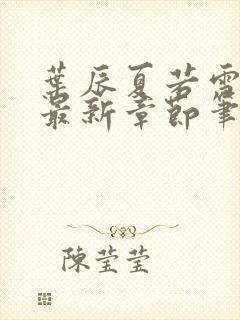 葉辰夏若雪
最新章節筆
陳瑩瑩